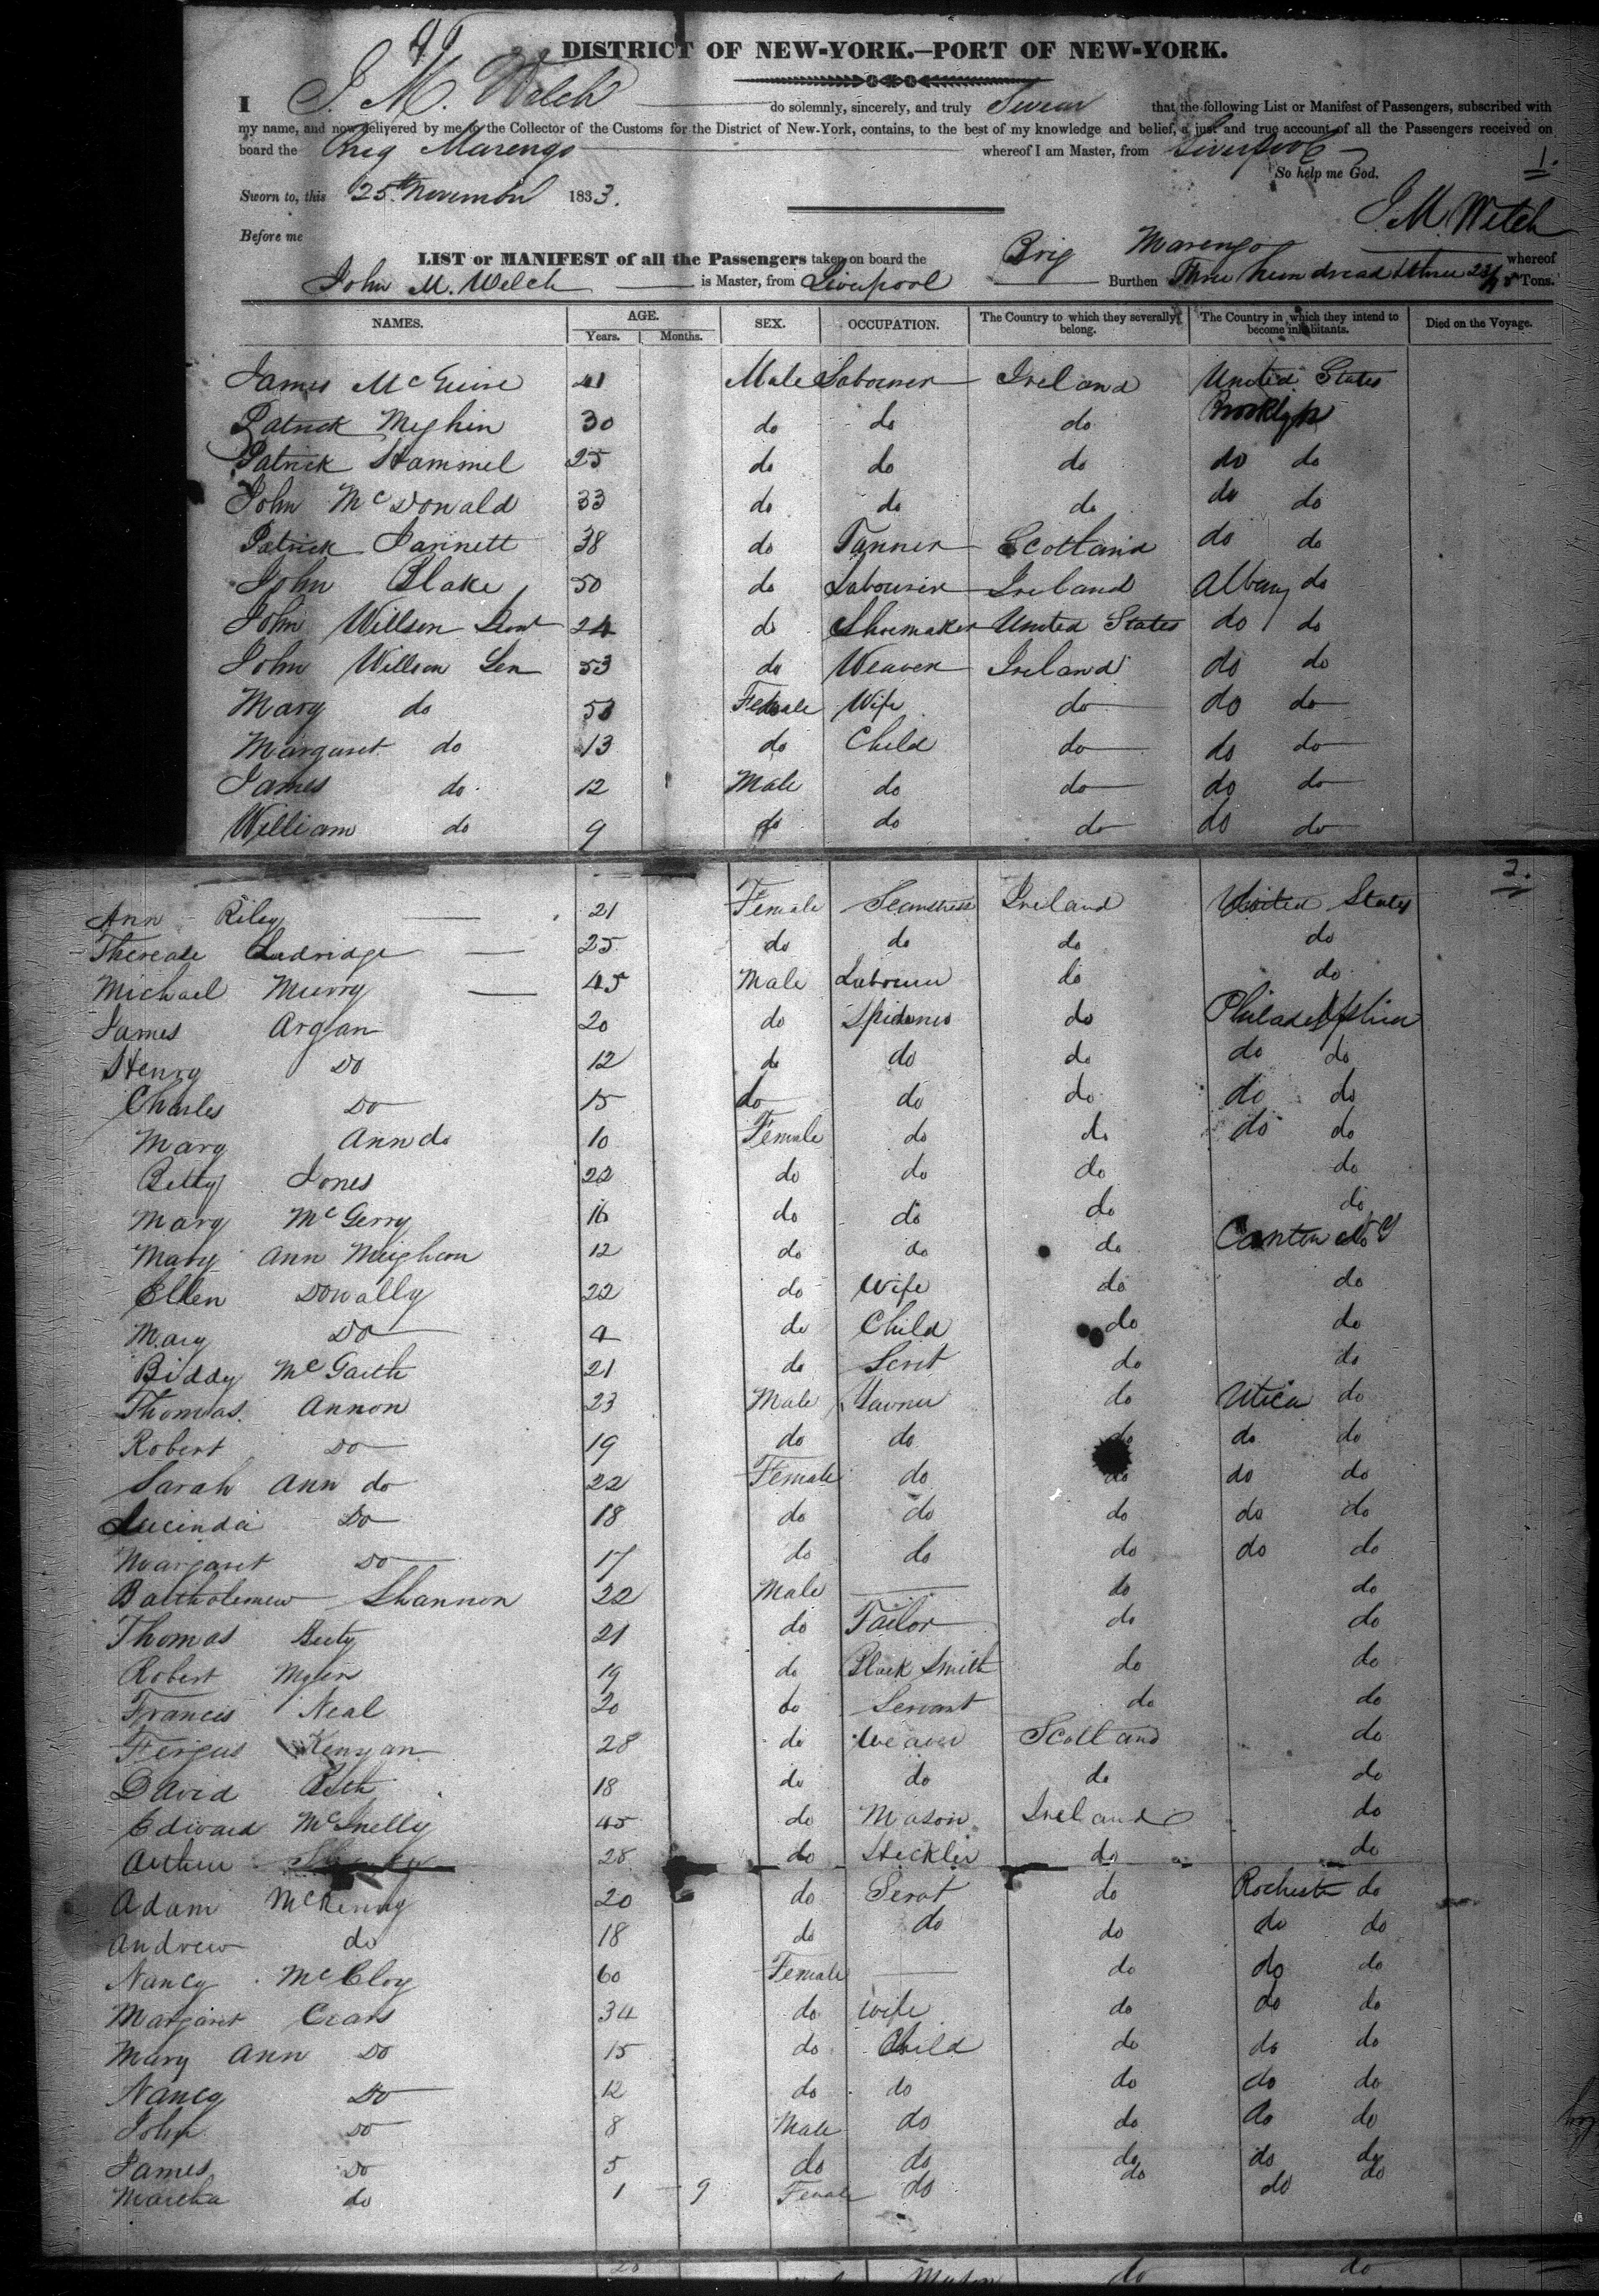 DISTRICT OF NEW-YORK.—PORT OF NEW-YORK.
I J. M. Welch do solemnly, sincerely, and truly Swear that the following List or Manifest of Passengers, subscribed with
my name, and now delivered by me to the Collector of the Customs for the District of New-York, contains, to the best of my knowledge and belief, a just and true account of all the Passengers received on
board the Brig Marengo whereof I am Master, from Liverpool
So help me God. 1.
Sworn to, this 25th November 1833.
J. M. Welch
Before me
LIST or MANIFEST of all the Passengers taken on board the Brig Marengo whereof
John M. Welch is Master, from Liverpool Burthen Three hundred & three Tons.
NAMES. AGE. SEX. OCCUPATION. The Country to which they severally belong. The Country in which they intend to become inhabitants. Died on the Voyage.
Years. Months.
James McGuire 41 Male Labourer Ireland United States
Patrick Meghin 30 do do do Brooklyn
Patrick Hammel 25 do do do do do
John McDonald 33 do do do do do
Patrick Jannett 38 do Tanner Scotland do do
John Blake 50 do Labourer Ireland Albany do
John Willson 24 do Shoemaker United States do do
John Willson Sen 53 do Weaver Ireland do do
Mary do 50 Female Wife do do do
Margaret do 13 do Child do do do
James do 12 Male do do do do
William do 9 do do do do do
2.
Ann Riley 21 Female Seamstress Ireland United States
Therease 25 do do do do
Michael Murry 45 Male Labourer do do
James Argan 20 do do Philadelphia
Henry Do 12 do do do do do
Charles Do 15 do do do do do
Mary Ann do 10 Female do do do do
Betty Jones 22 do do do do
Mary McGerry 16 do do do do
Mary Ann Meighan 12 do do do Canton NY
Ellen Dowally 22 do Wife do do
Mary Do 4 do Child do do
Biddy McGarth 21 do Servt do do
Thomas Annon 23 Male do Utica do
Robert Do 19 do do do do do
Sarah Ann do 22 Female do do do do
Lucinda Do 18 do do do do do
Margaret Do 17 do do do do do
Bartholemew Shannon 22 Male do do
Thomas 21 do Tailor do do
Robert 19 do Black Smith do do
Francis Neal 20 do Servant do do
Fergus Kenyan 28 do Weaver Scotland do
David 18 do do do do
Edward McSnelly 45 do Mason Ireland do
Arthur 28 do Heckler do do
Adam McKenny 20 do Servt do Rochester do
Andrew do 18 do do do do do
Nancy McCloy 60 Female do do do
Margaret 34 do wife do do do
Mary Ann Do 15 do Child do do do
Nancy Do 12 do do do do do
John Do 8 Male do do do do
James Do 5 do do do do do
Martha do 1 9 Female do do do do
Mason do do